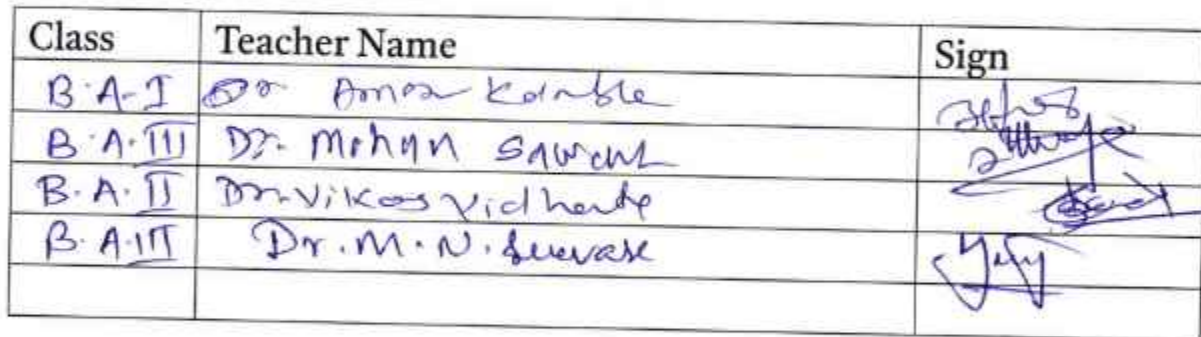 Class Teacher Name Sign
B.A-I Dr Amar Kamble
B.A.III Dr. Mohan Sawant
B.A.II Dr. Vikas
B.A.III Dr. M. N.